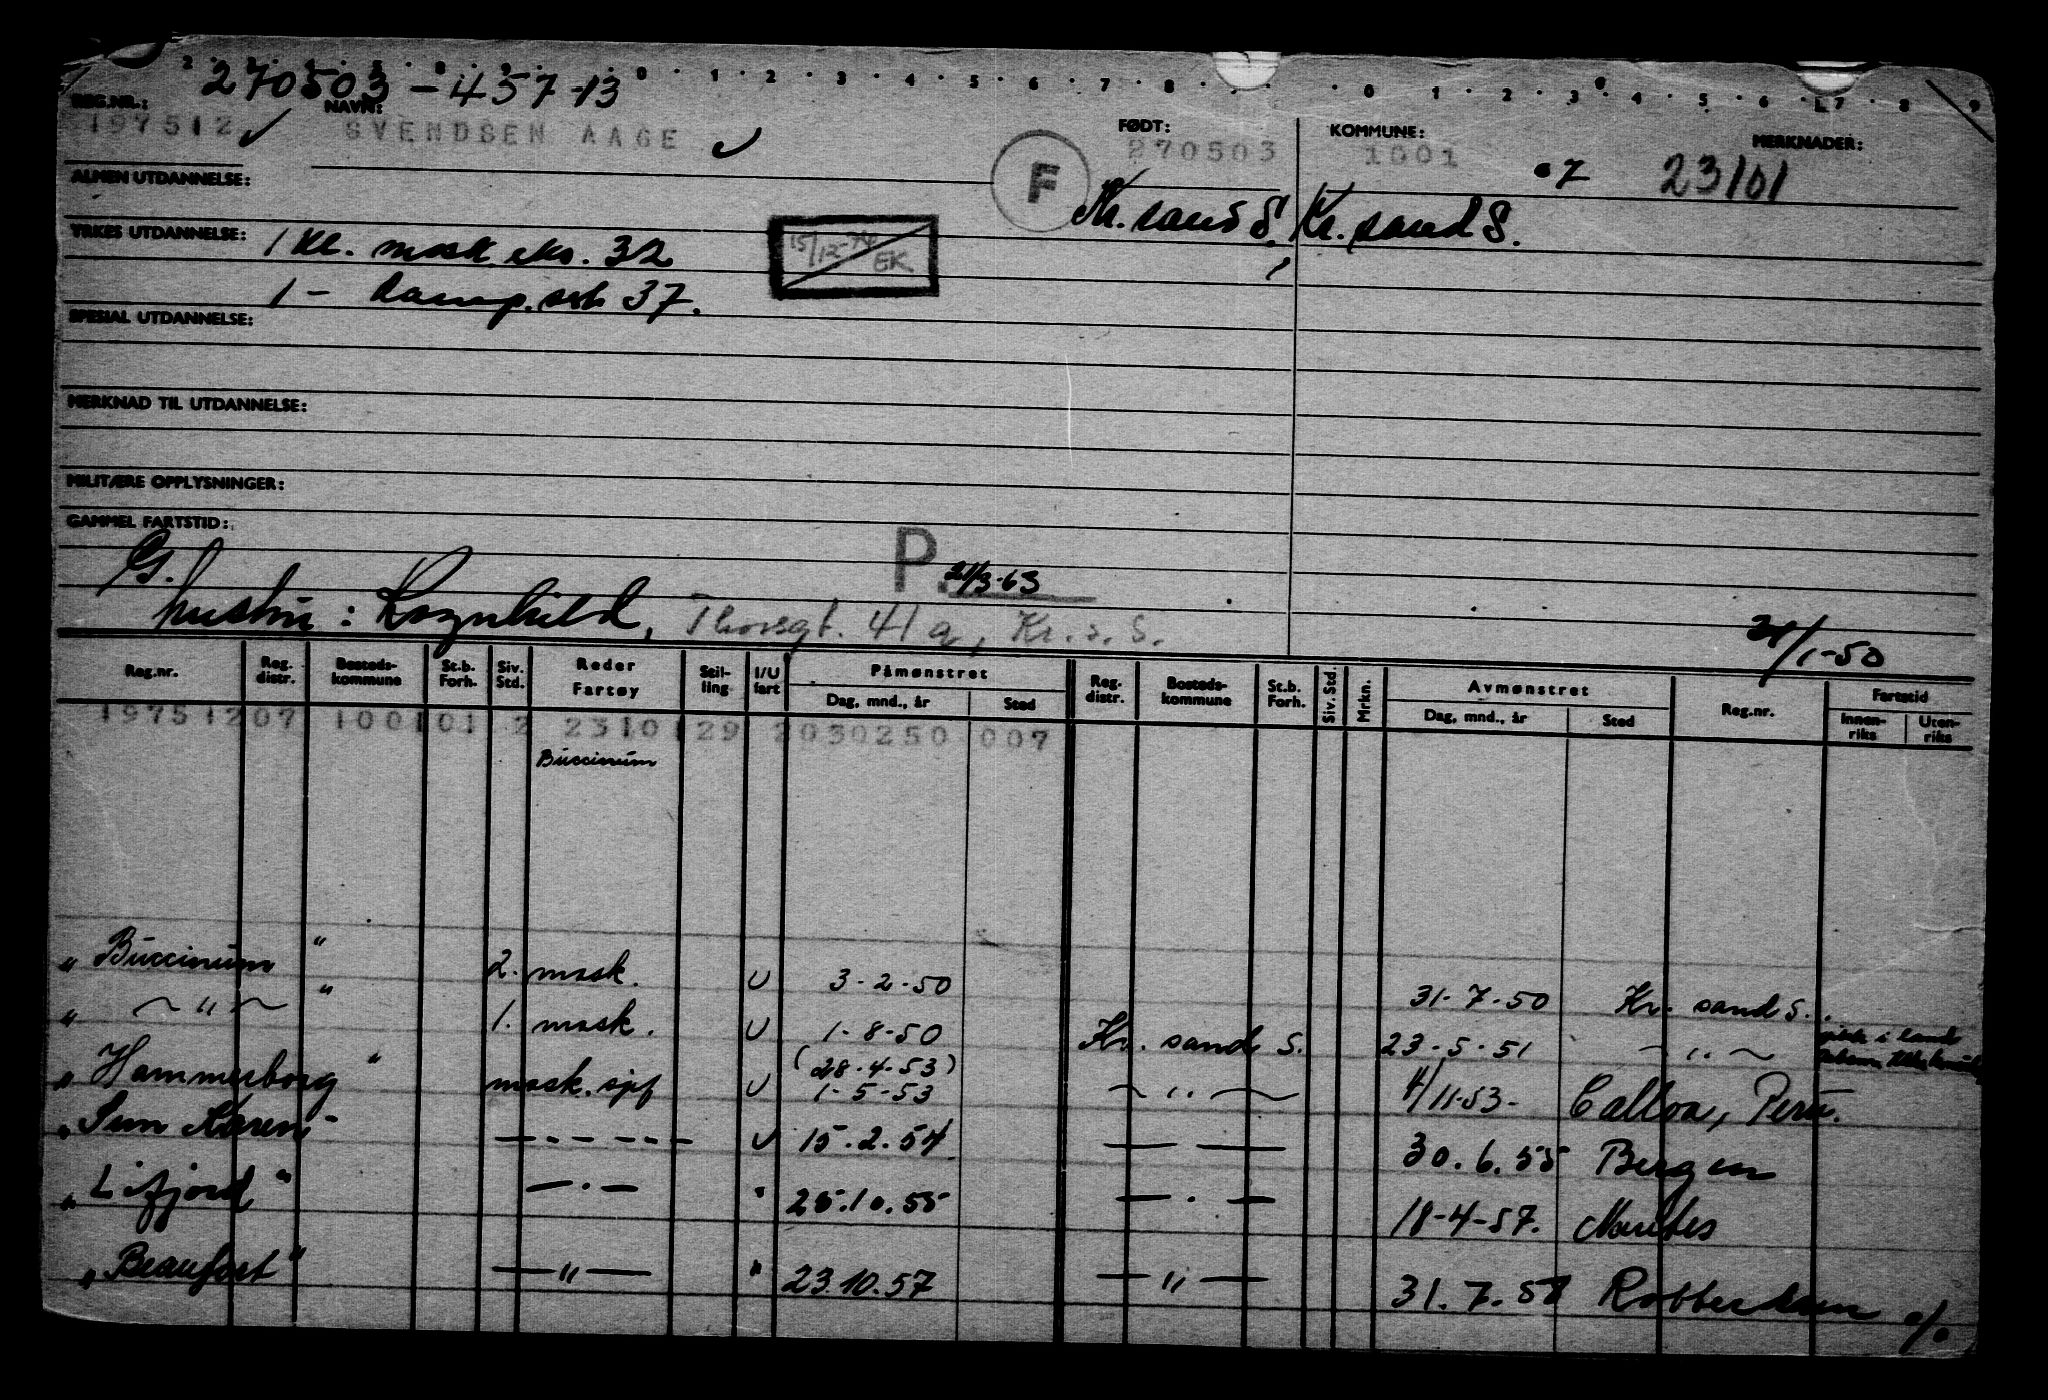 270503-457-13
REG.NR.: NAVN: FØDT: KOMMUNE: MERKNADER:
197512 SVENDSEN AAGE F 270503 1001 07 23101
Kr. sand S. Kr. sand S.
ALMEN UTDANNELSE:
YRKES UTDANNELSE: 1 Kl. mask. eks. 32
15/12-74 EK
1 - damp. sert. 37.
SPESIAL UTDANNELSE:
MERKNAD TIL UTDANNELSE:
MILITÆRE OPPLYSNINGER:
GAMMEL FARTSTID:
G. P. 21/3-63
hustru: Ragnhild, Thorsgt. 41 a, Kr. s. S.
/1-50
Reg.nr. Reg. distr. Bosteds-kommune St.b. Forh. Siv. Std. Reder Fartøy Stil-ling I/U fart Påmønstret Dag, mnd., år Sted Reg. distr. Bosteds-kommune St.b. Forh. Siv. Std. Mrkn. Avmønstret Dag, mnd., år Sted Reg.nr. Fartstid Innen-riks Uten-riks
197512 07 1001 01 2 23101 29 2 030250 007
Buccinum
" Buccinum " 2. mask. U 3-2-50 31-7-50 Kr. sand S.
" — " — " 1. mask. U 1-8-50 Kr. sand S. 23-5-51 — " — i land
" Hammerborg " mask. sjef U (28-4-53) 1-5-53 — " — 4/11-53- Calloa, Peru.
" Sun Karen " — - — U 15.2.54 — — 30.6.55 Bergen
" Lifjord " — . — " 25.10.55 — . — 18-4-57. Nantes
" Beaufort " — " — " 23.10.57 — " — 31.7.58 Rotterdam %